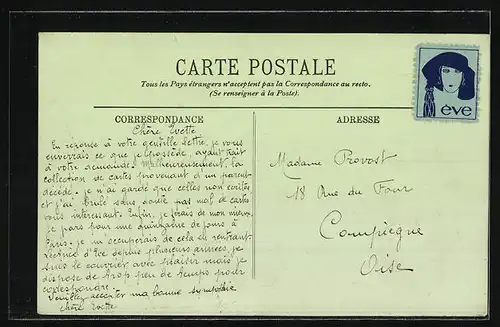 CARTE POSTALE
Tous les Pays étrangers n'acceptent pas la Correspondance au recto.
(Se renseigner à la Poste).
CORRESPONDANCE
Chère Yvette
En réponse à votre gentille lettre, je vous
enverrais ce que je possède, ayant trait
à votre demande. Malheureusement, la
collection de cartes provenant d'un parent
décédé. je n'ai gardé que celles non écrites
et j'ai brulé sans doute pas mal de cartes
vous intéressant. Enfin, je ferais de mon mieux,
je pars pour une quinzaine de jours à
je m'occuperais de cela en rentrant.
d'Eve depuis plusieurs années, je
suis le courrier avec plaisir mais je
dispose de trop peu de temps pour
correspondre.
Veuillez accepter ma bonne sympathie
chère Yvette
ADRESSE
Madame Provost
18 Rue du Four
Compiegne
Oise
eve